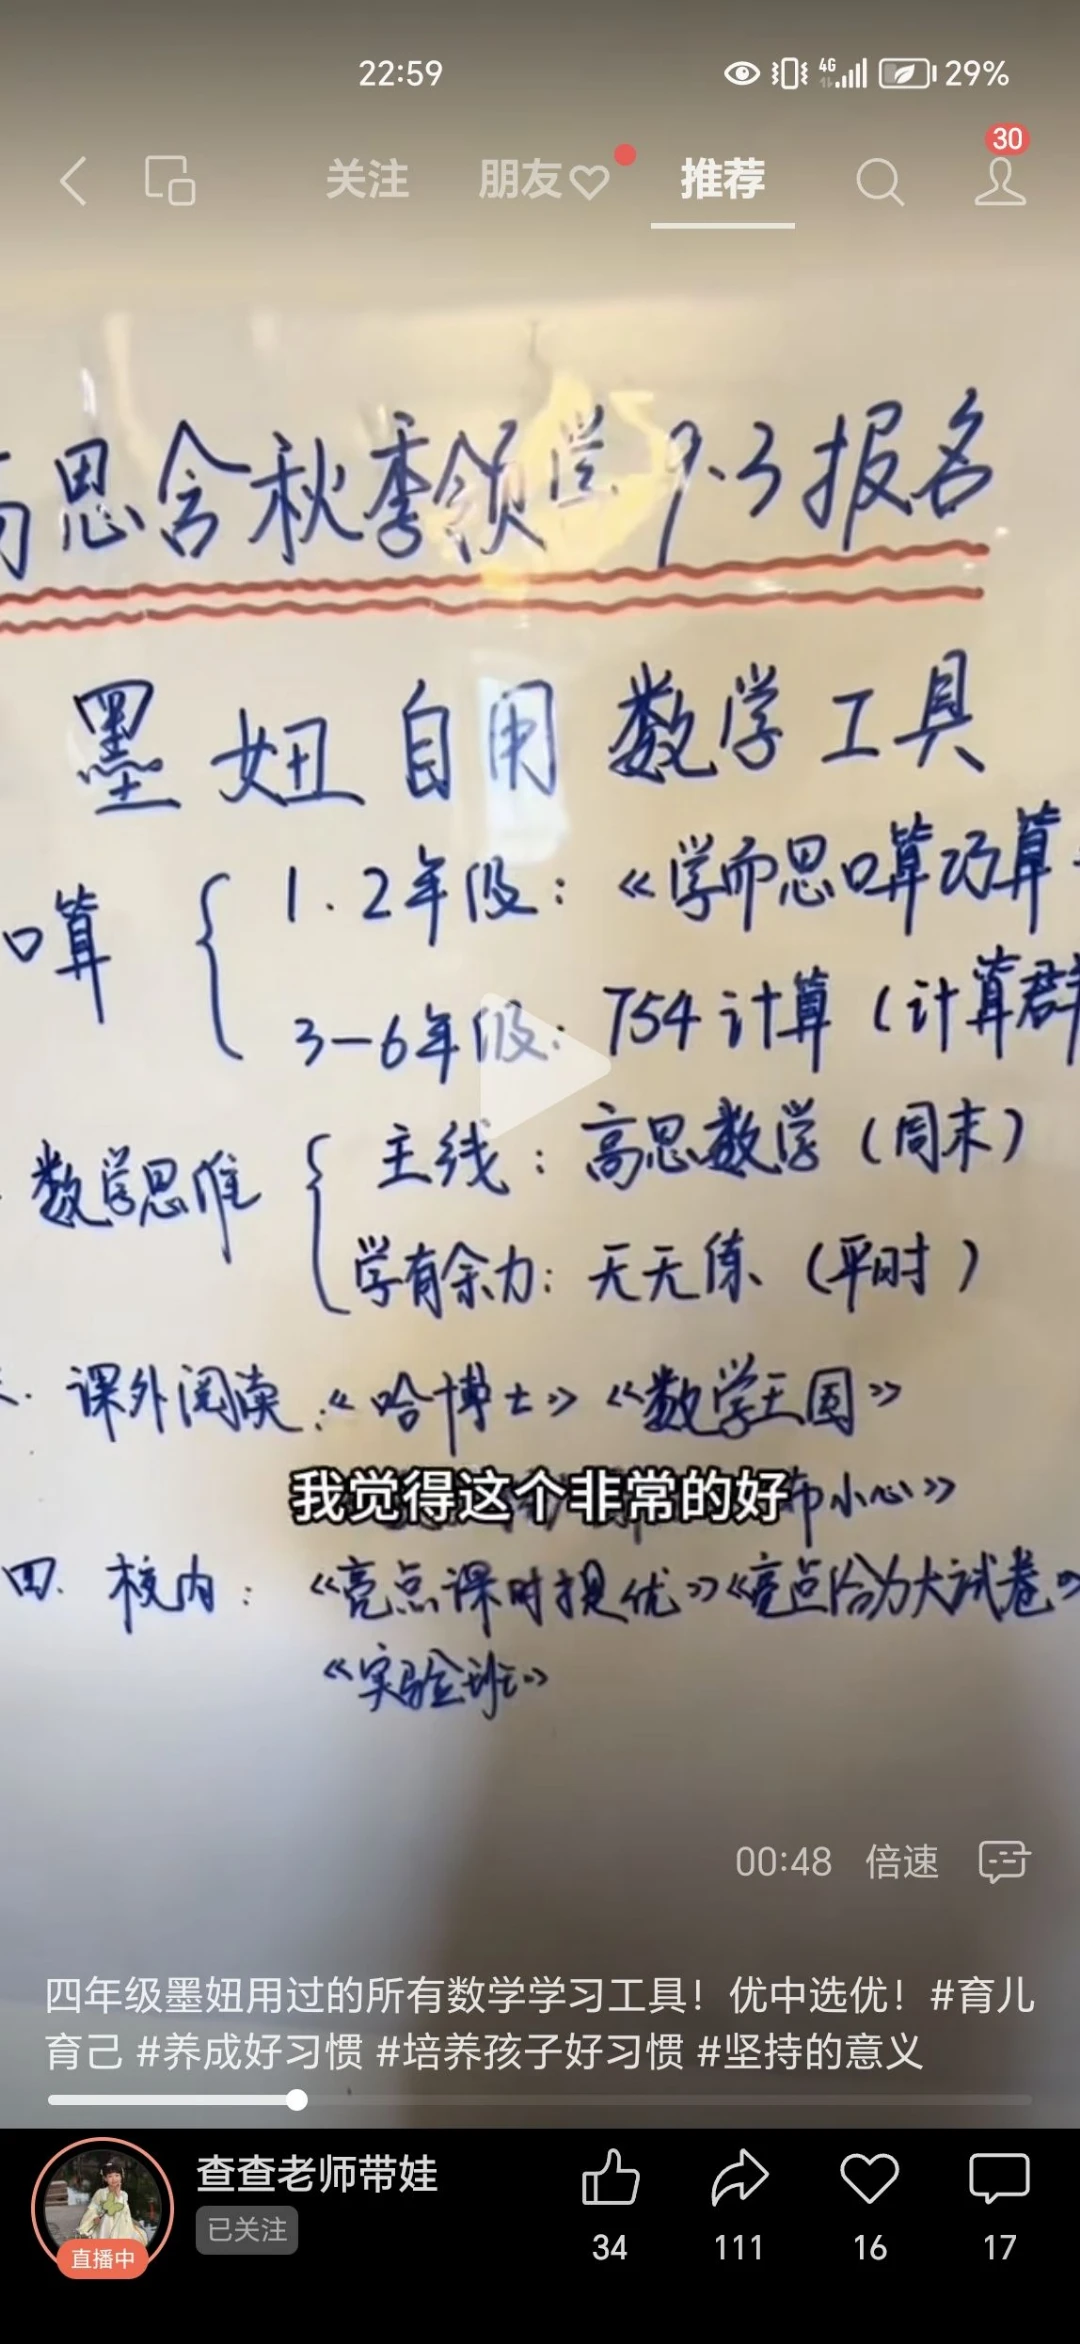 22:59
4G
29%
关注
朋友
推荐
30
思含秋季领学 9.3报名
墨妞自用数学工具
口算
1.2年级:《学而思口算巧算
3—6年级: 754计算(计算群
数学思维
主线:高思数学(周末)
学有余力:天天练(平时)
课外阅读:《哈博士》《数学王国》
小心》
我觉得这个非常的好
四.校内:《亮点课时提优》《亮点给力大试卷》
《实验班》
00:48 倍速
四年级墨妞用过的所有数学学习工具!优中选优!#育儿
育己 #养成好习惯 #培养孩子好习惯 #坚持的意义
查查老师带娃
已关注
直播中
34
111
16
17